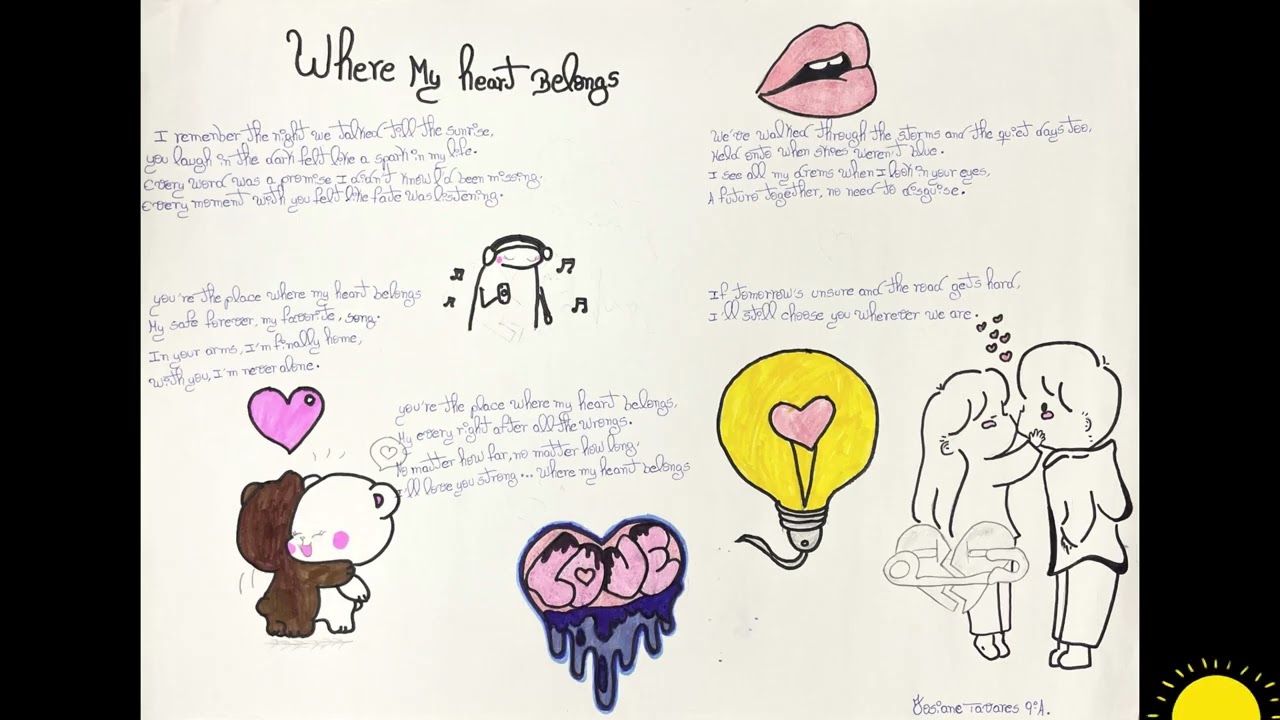 Where My heart Belongs
I remember the night we talked till the sunrise,
you laugh in the dark felt like a spark in my life.
Every word was a promise I didn't know I'd been missing.
Every moment with you felt like fate was listening.
you're the place where my heart belongs
My safe forever, my favorite, song.
In your arms, I'm finally home,
With you, I'm never alone.
you're the place where my heart belongs,
My every right after all the wrongs.
No matter how far, no matter how long,
I'll love you strong... where my heart belongs
LOVE
We've walked through the storms and the quiet days too,
Held onto when skies weren't blue.
I see all my drems when I look in your eyes,
A future together, no need to disguise.
If tomorrow's unsure and the road gets hard,
I'll still choose you wherever we are.
Josiane Tavares 9ºA.